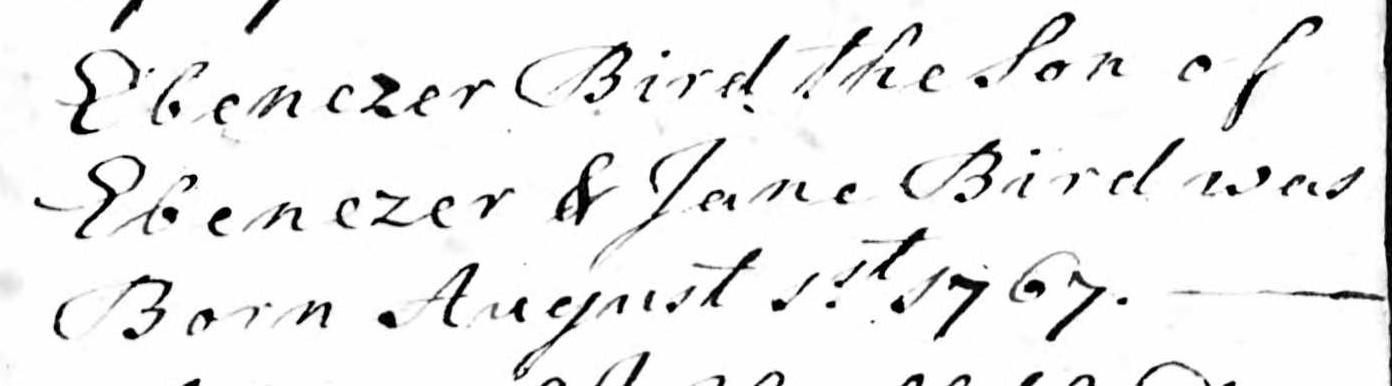 Ebenezer Bird the Son of
Ebenezer & Jane Bird was
Born August 1st. 1767.